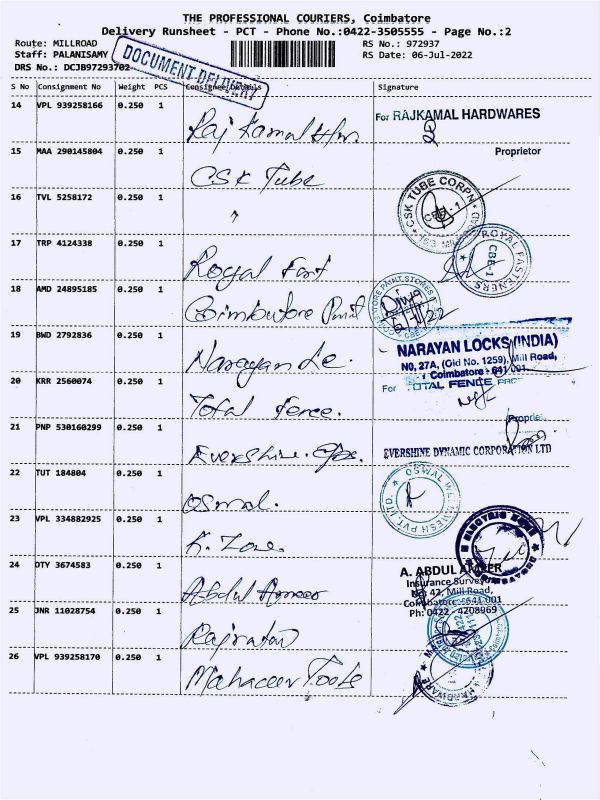 THE PROFESSIONAL COURIERS, Coimbatore
Delivery Runsheet - PCT - Phone No.:0422-3505555 - Page No.:2
Route: MILLROAD
RS No.: 972937
Staff: PALANISAMY
RS Date: 06-Jul-2022
DRS No.: DCJB97293702
DOCUMENT DELIVERY
S No Consignment No Weight PCS Consignee Details Signature
14 VPL 939258166 0.250 1 Raj Kamal
For RAJKAMAL HARDWARES
15 MAA 290145804 0.250 1 CSK Tube
Proprietor
16 TVL 5258172 0.250 1 "
CSK TUBE CORPN
CBE - 1
17 TRP 4124338 0.250 1 Royal Fast
ROYAL FASTENERS
CBE-1
18 AMD 24895185 0.250 1 Coimbatore Paint
COIMBATORE PAINT STORES
19 BWD 2792836 0.250 1 Narayan Lo.
NARAYAN LOCKS (INDIA)
NO, 27A, (Old No. 1259), Mill Road,
Coimbatore - 641 001
20 KRR 2560074 0.250 1 Total Fence.
For TOTAL FENCE
21 PNP 530160299 0.250 1 Evershine.
Proprie
EVERSHINE DYNAMIC CORPORATION LTD
22 TUT 184804 0.250 1 Oswal.
OSWAL PVT. LTD.
23 VPL 334882925 0.250 1 K. Zone.
ELECTRIC
24 OTY 3674583 0.250 1 Abdul Ameer
A. ABDUL AMEER
Insurance Surveyor
No: 42, Mill Road,
Coimbatore - 641 001
Ph: 0422 - 4208969
25 JNR 11028754 0.250 1 Rajratan
26 VPL 939258170 0.250 1 Mahaveer Tools